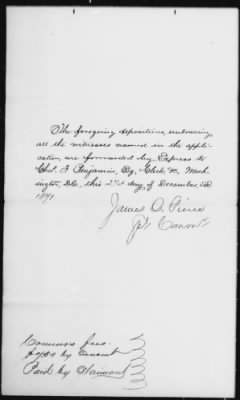 The foregoing depositions, embracing
all the witnesses named in the appli-
cation, are forwarded by Express to
Chas. F. Benjamin, Esq. Clerk &c, Wash-
ington, D.C., this 27th day of December, A.D.
1871.
James O. Pierce
Spl. Commr.
Commrs fees
by consent
Paid by Claimant